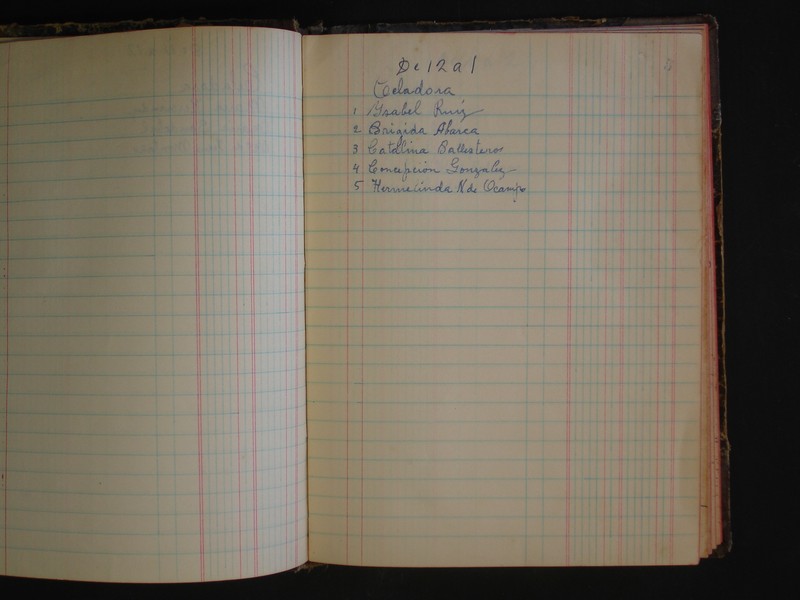 De 12 a 1
Celadora
1 Ysabel Ruíz
2 Brigida Abarca
3 Catalina Ballesteros
4 Concepción Gonzalez
5 Hermelinda N de Ocampo